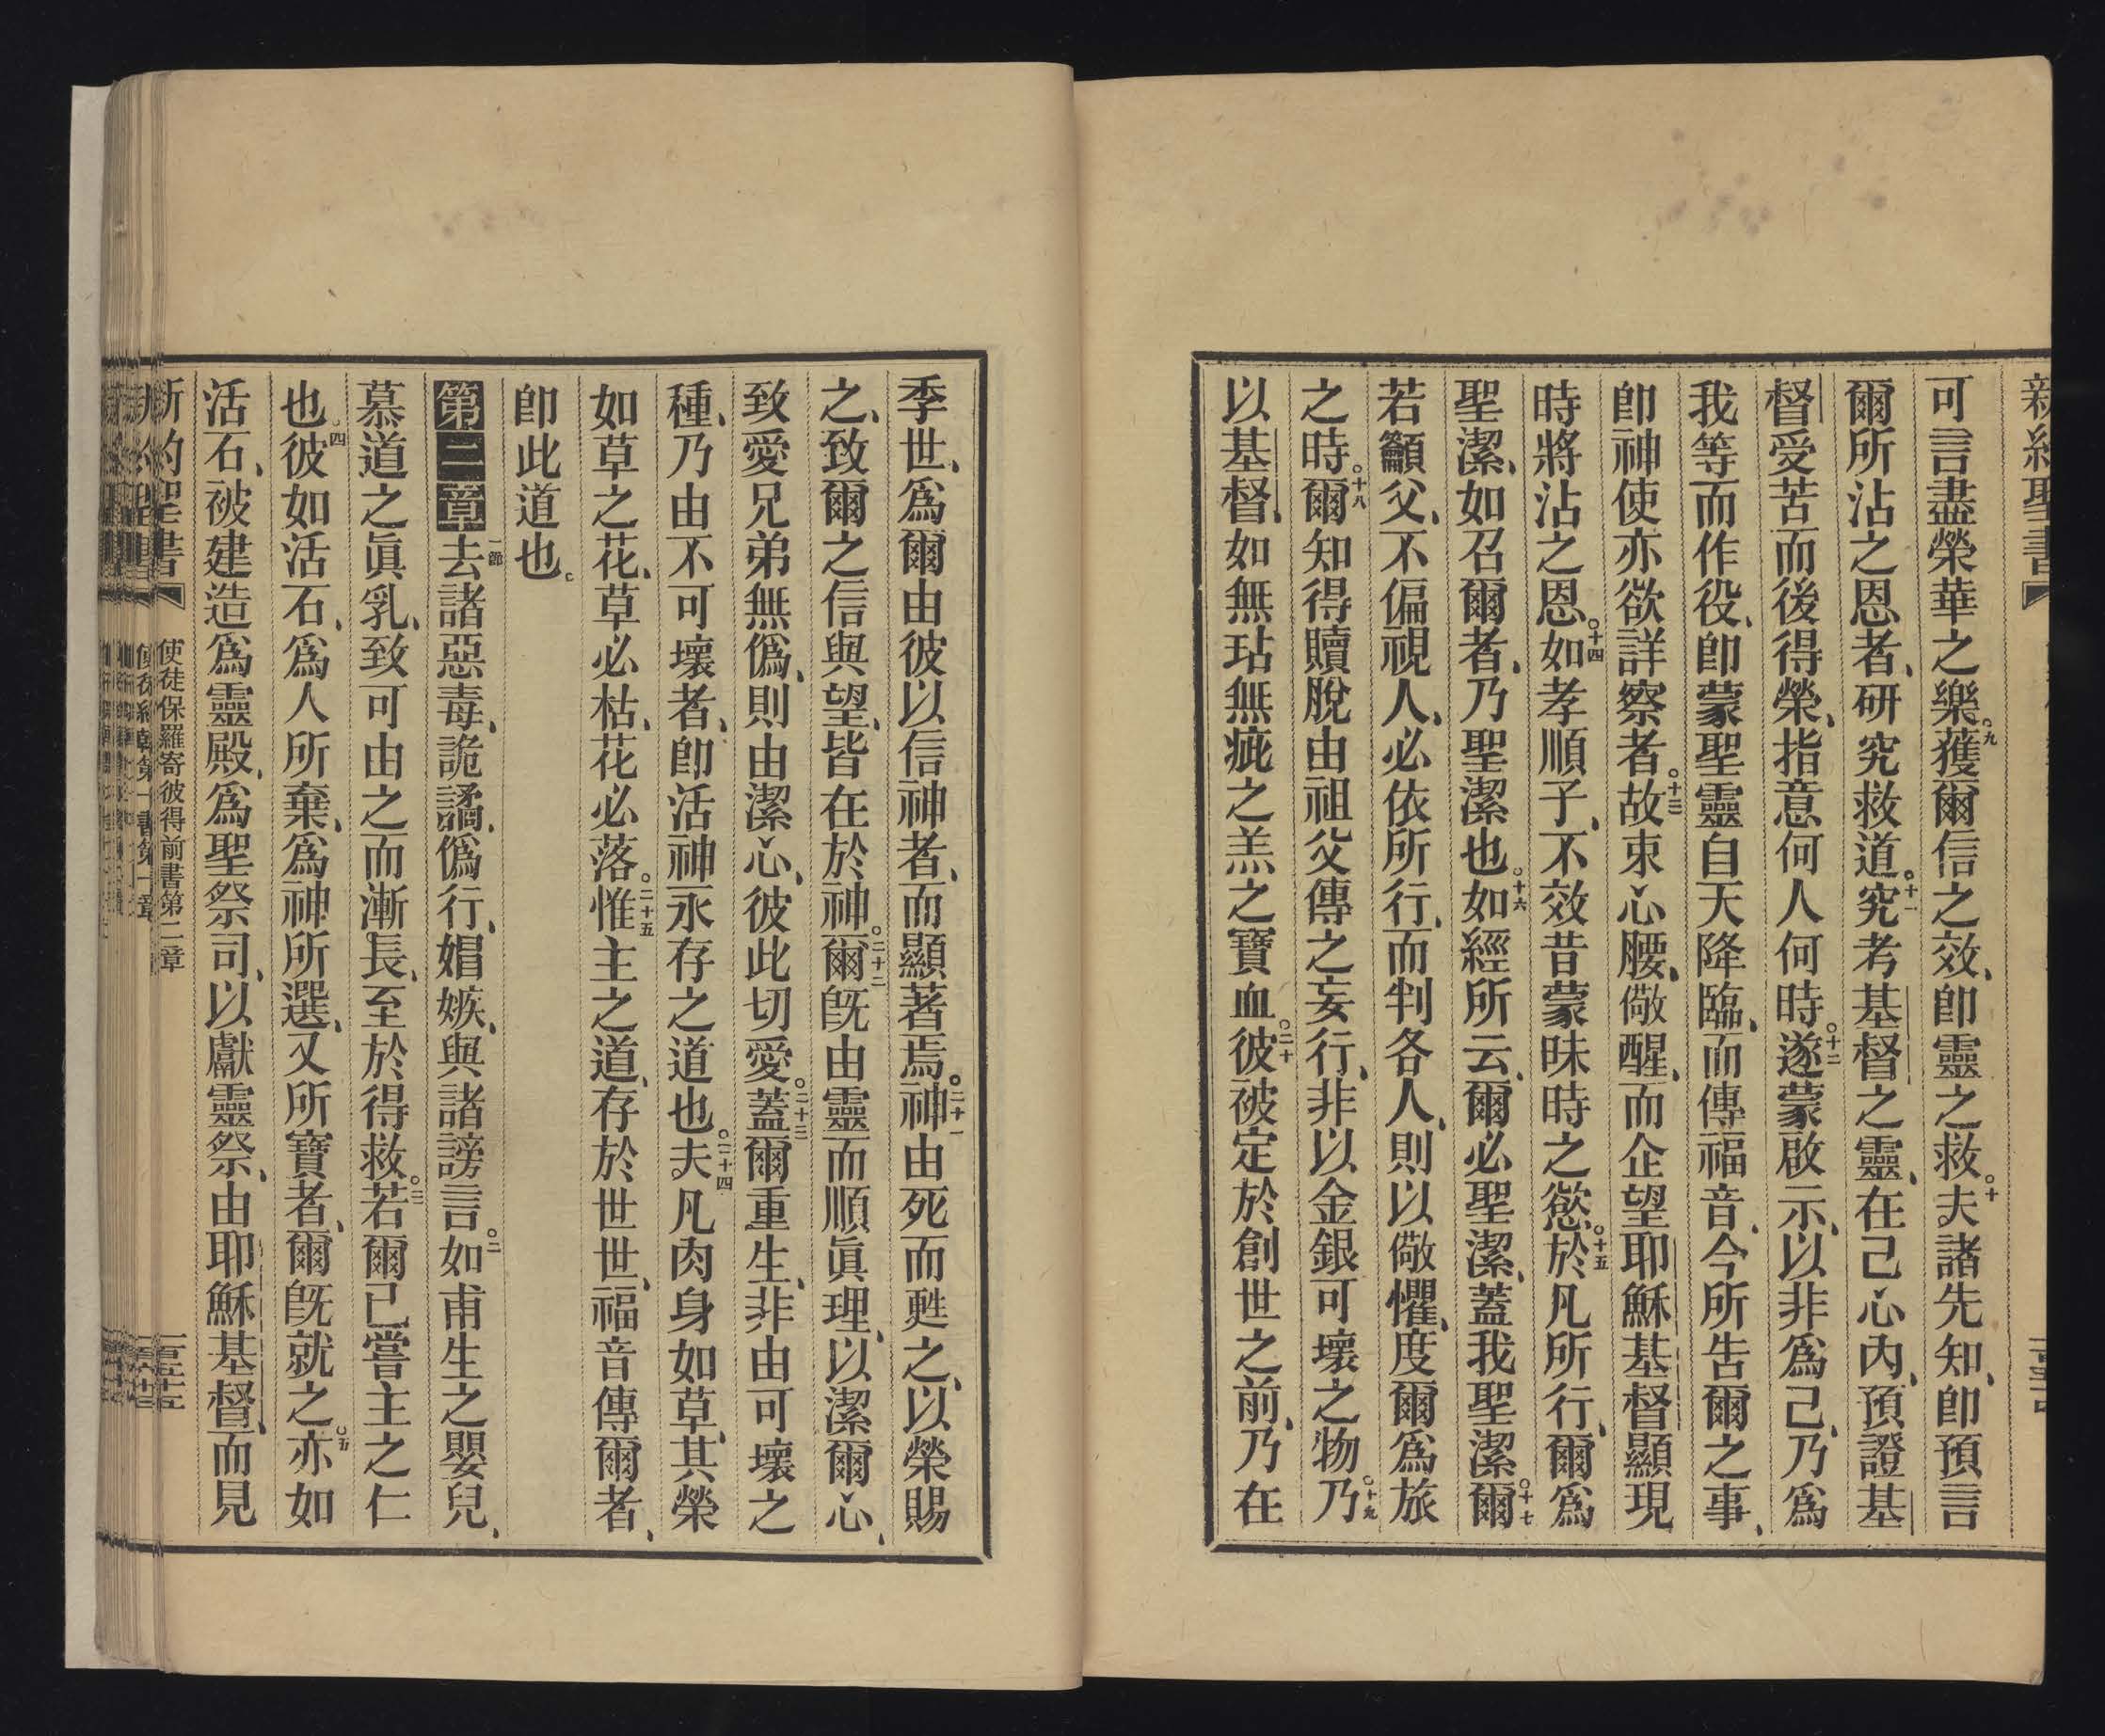 可言盡榮華之樂。九獲爾信之效、卽靈之救。十夫諸先知、卽預言
爾所沾之恩者、研究救道。十一究考基督之靈、在己心內、預證基
督受苦而後得榮、指意何人何時。十二遂蒙啟示、以非爲己、乃爲
我等而作役、卽蒙聖靈自天降臨、而傳福音、今所告爾之事、
卽神使亦欲詳察者。十三故束心腰、儆醒、而企望耶穌基督顯現
時將沾之恩。十四如孝順子、不效昔蒙昧時之慾。十五於凡所行、爾爲
聖潔、如召爾者、乃聖潔也。十六如經所云、爾必聖潔、蓋我聖潔。十七爾
若籲父、不偏視人、必依所行、而判各人、則以儆懼、度爾爲旅
之時。十八爾知得贖脫由祖父傳之妄行、非以金銀可壞之物。十九乃
以基督、如無玷無疵之羔之寶血。二十彼被定於創世之前、乃在
季世、爲爾由彼以信神者、而顯著焉。二十一神由死而甦之、以榮賜
之、致爾之信與望、皆在於神。二十二爾旣由靈而順眞理、以潔爾心、
致愛兄弟無僞、則由潔心、彼此切愛。二十三蓋爾重生、非由可壞之
種、乃由不可壞者、卽活神永存之道也。二十四夫凡肉身如草、其榮
如草之花、草必枯、花必落。二十五惟主之道、存於世世、福音傳爾者、
卽此道也。
第二章一節去諸惡毒、詭譎、僞行、娼嫉、與諸謗言。二如甫生之嬰兒、
慕道之眞乳、致可由之而漸長、至於得救。三若爾已嘗主之仁
也。四彼如活石、爲人所棄、爲神所選、又所寶者、爾旣就之。五亦如
活石、被建造爲靈殿、爲聖祭司、以獻靈祭、由耶穌基督、而見
新約聖書 使徒保羅寄彼得前書第二章